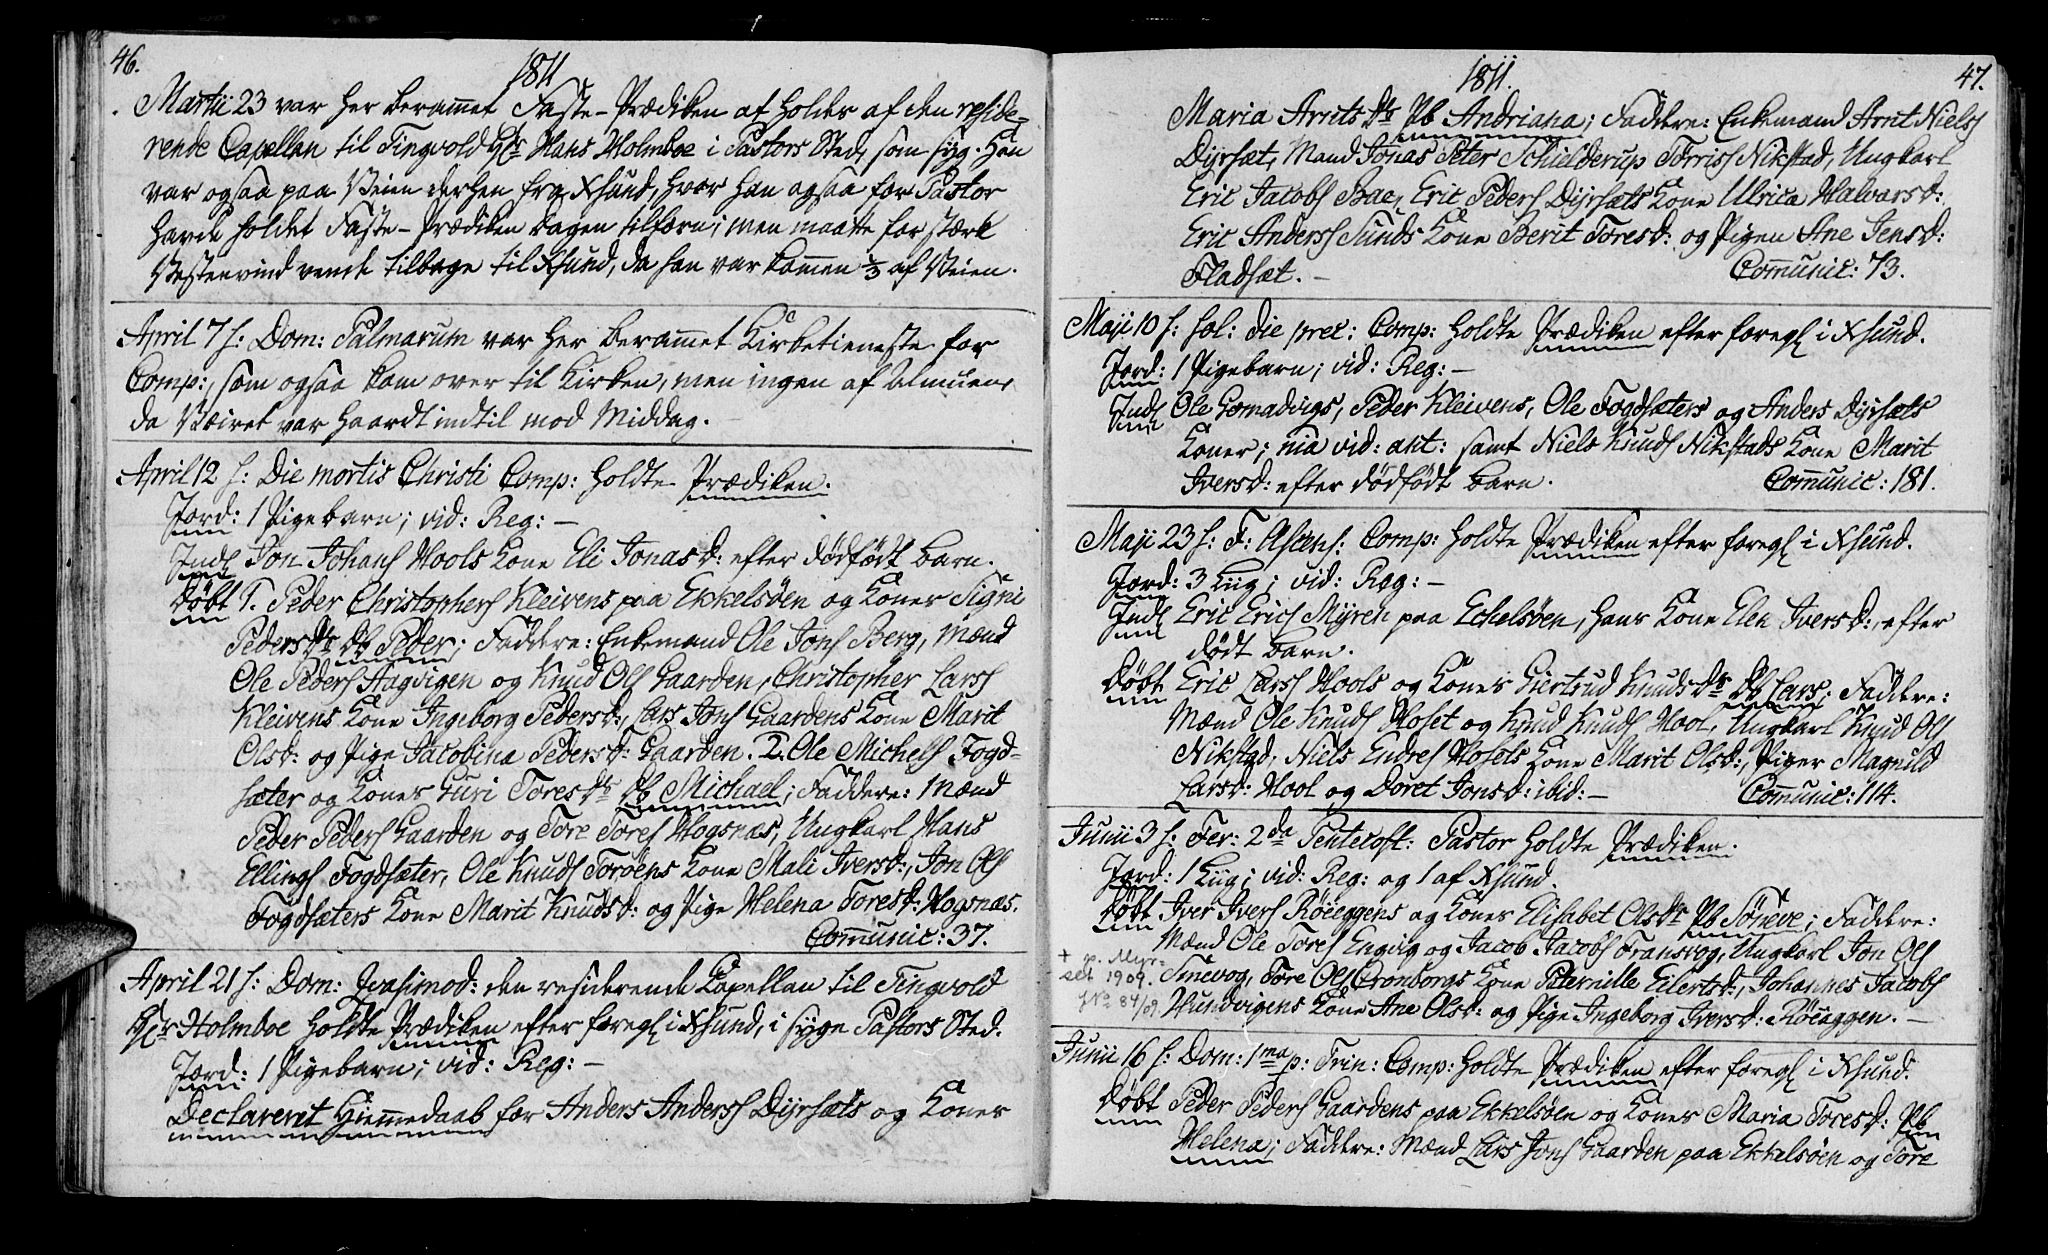 46.
1811
Martii 23 var her berammet Faste-Prædiken af holdes af den reside-
rende Capellan til Tingvold Hr Hans Holmboe i Pastors Sted, som syg. Han
var ogsaa paa Veien derhen fra Xsund, hvor han ogsaa for Pastor
havde holdet Faste-Prædiken dagen tilforn; men maatte for stærk
Vestenvind vende tilbage til Xsund, da han var kommen 1/3 af Veien.
April 7 s: Dom: Palmarum var her berammet Kirketieneste for
Comp:, som ogsaa kom over til Kirken, men ingen af Almuen,
da Væiret var haardt indtil mod Middag.
April 12 s: Die mortis Christi Comp: holdte Prædiken.
Jord: 1 Pigebarn; vid: Reg: -
Indl Jon Johans Hools Kone Eli Jonasd: efter dødfødt barn.
Døbt 1. Peder Christophers Kleivens paa Ekkelsöen og Kones Signi
Pedersdr Db Peder; Faddere: Enkemand Ole Jons Berg, Mænd
Ole Peders Aagvigen og Knud Ols Gaarden, Christopher Larss
Kleivens Kone Ingeborg Pedersd:, Lars Jons Gaardens Kone Marit
Olsd: og Pige Jacobina Pedersd: Gaarden. 2. Ole Michels Fogd-
sæter og Kones Guri Toresdr Db Michael; Faddere: Mænd
Peder Peders Gaarden og Tore Tores Hogsnæs, Ungkarl Hans
Ellings Fogdsæter, Ole Knuds Toröens Kone Mali Iversd:, Jon Ols
Fogdsæters Kone Marit Knudsd: og Pige Helena Toresd: Hogsnæs.
Communic: 37.
April 21 s: Dom: Qvasimod: den residerende Capellan til Tingvold
Hr Holmboe holdte Prædiken efter foregl i Xsund, i syge Pastors Sted.
Jord: 1 Pigebarn; vid: Reg: -
Declareret Hiemmedaab for Anders Anderss Dyrsæts og Kones
1811.
47.
Maria Arntsdr Pb Andriana; Faddere: Enkemand Arnt Nielss
Dyrsæt, Mand Jonas Peter Schielderup Torriss Nikstad, Ungkarl
Eric Jacobs Bae, Eric Peders Dyrsæts Kone Ulrica Halvarsd:
Eric Anderss Sunds Kone Berit Toresd: og Pigen Ane Jensd:
Fladsæt. - Communic: 73.
Maji 10 s: sol: die prec: Comp: holdte Prædiken efter foregl i Xsund.
Jord: 1 Pigebarn; vid: Reg: -
Indl Ole Gomadvigs, Peder Kleivens, Ole Fogdsæters og Anders Dyrsæts
Koner; nia vid: ant: samt Niels Knuds Nikstads Kone Marit
Iversd: efter dødfødt barn. Communic: 181.
Maji 23 s: F: Ascens: Comp: holdte Prædiken efter foregl i Xsund.
Jord: 3 Liig; vid: Reg: -
Indl Eric Erics Myren paa Echelsöen, hans Kone Elen Iversd:, efter
dødt barn.
Døbt Eric Larss Hools og Kones Giertrud Knudsdr Db Lars; Faddere:
Mænd Ole Knuds Hoset og Knud Knuds Hool, Ungkarl Knud Ols
Nikstad, Niels Endres Hosets Kone Marit Olsd:, Piger Magnild
Larsd: Hool og Doret Jonsd: ibid: - Communic: 114.
Junii 3 s: Fer: 2da Pentecost: Pastor holdte Prædiken.
Jord: 1 Liig; vid: Reg: og 1 af Xsund.
Døbt Iver Ivers Röeeggens og Kones Elisabet Olsdr Pb Söneve; Faddere:
Mænd Ole Tores Engvig og Jacob Jacobs Fransvog, Ungkarl Jon Ols
+ p. Myr-
set 1909. Smevog, Tore Ols Cronborgs Kone Peternille Eilertsd:, Johannes Jacobs
J No 84/09. Hundvigens Kone Ane Olsd: og Pige Ingeborg Iversd: Röeaggen. -
Junii 16 s: Dom: 1ma p: Trin: Comp: holdte Prædiken efter foregl i Xsund.
Døbt Peder Peders Gaardens paa Ekkelsöen og Kones Maria Toresd: Pb
Helena; Faddere: Mænd Lars Jons Gaarden paa Ekkelsöen og Tore